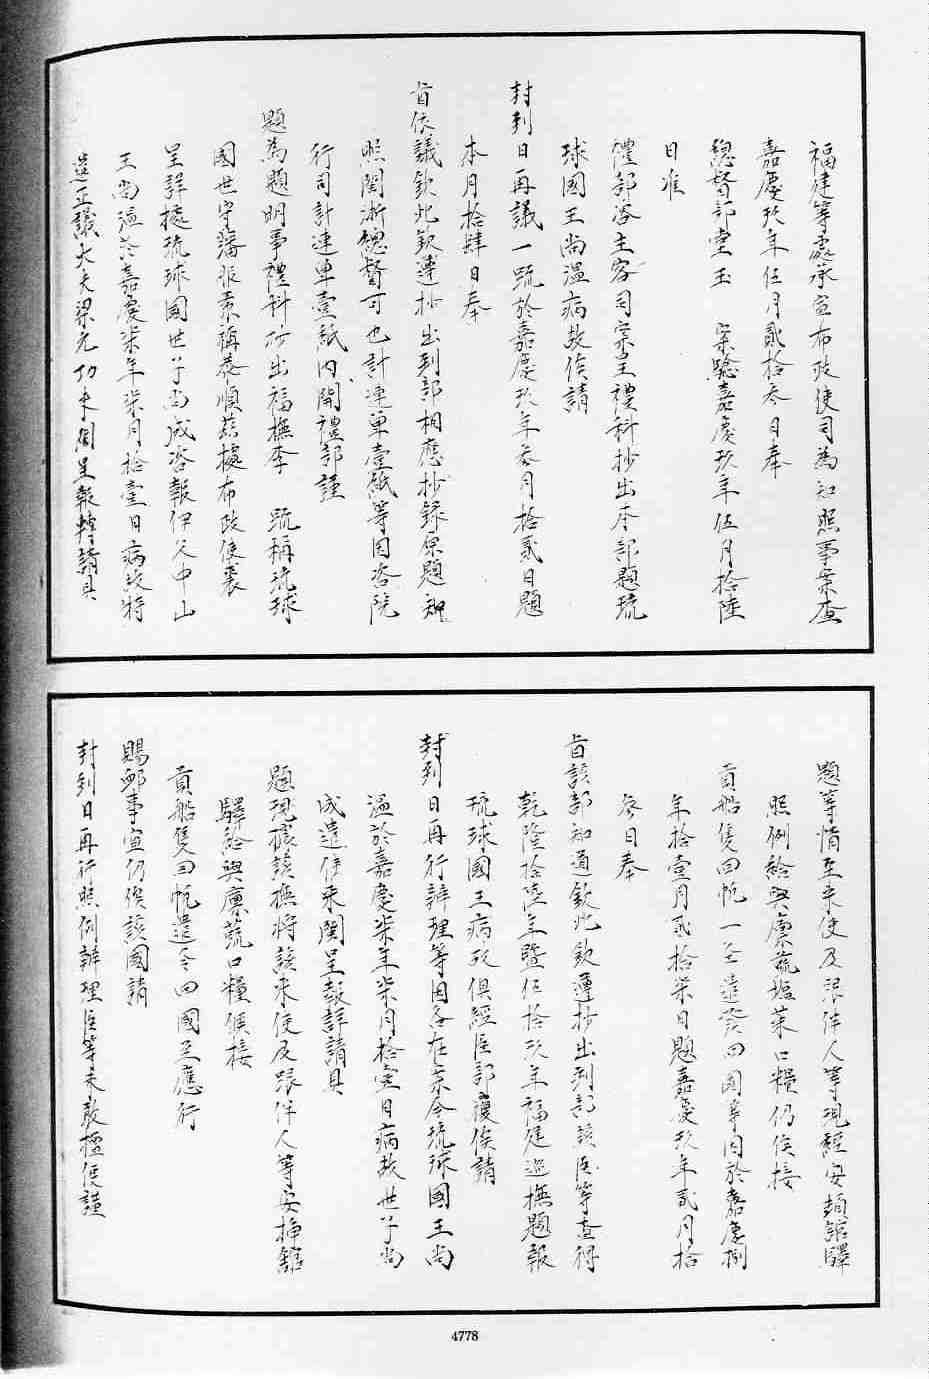 福建等處承宣布政使司為知照事案查
嘉慶玖年伍月貳拾叁日奉
總督部堂玉　案驗嘉慶玖年伍月拾陸
日准
禮部咨主客司案呈禮科抄出本部題琉
球國王尚溫病故俟請
封到日再議一䟽於嘉慶玖年叁月拾貳日題
本月拾肆日奉
旨依議欽此欽遵抄出到部相應抄錄原題知
照閩浙總督可也計連單壹紙等因咨院
行司計連單壹紙內開禮部謹
題為題明事禮科抄出福撫李　䟽稱琉球
國世守藩服素稱恭順茲據布政使裘
呈詳據琉球國世子尚成咨報伊父中山
王尚溫於嘉慶柒年柒月拾壹日病故特
遣正議大夫梁元功來閩呈報轉請具
題等情至來使及跟伴人等現經安頓館驛
照例給與廩蔬塩菜口糧仍俟接
貢船隻回帆一全遣發回國等因於嘉慶捌
年拾壹月貳拾柒日題嘉慶玖年貳月拾
叁日奉
旨該部知道欽此欽遵抄出到部該臣等查得
乾隆拾陸年暨伍拾玖年福建巡撫題報
琉球國王病故俱經臣部覆俟請
封到日再行辦理等因各在案今琉球國王尚
溫於嘉慶柒年柒月拾壹日病故世子尚
成遣使來閩呈報詳請具
題現據該撫將該來使及跟伴人等安挿館
驛給與廩蔬口糧候接
貢船隻回帆遣令回國至應行
賜卹事宜仍俟該國請
封到日再行照例辦理臣等未敢擅便謹
4778